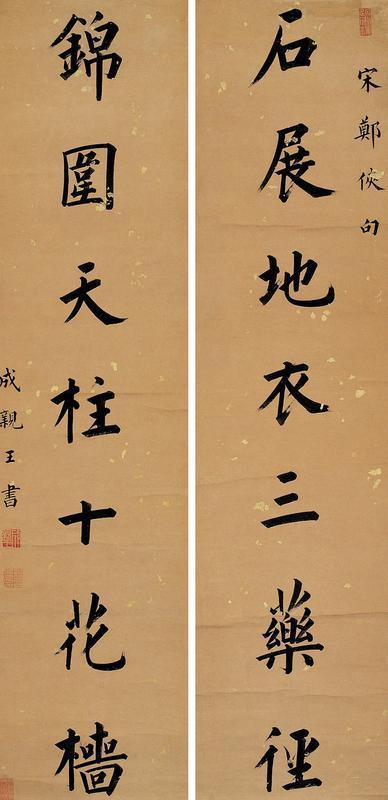 宋鄭俠句
石展地衣三藥徑
錦圍天柱十花檣
成親王書